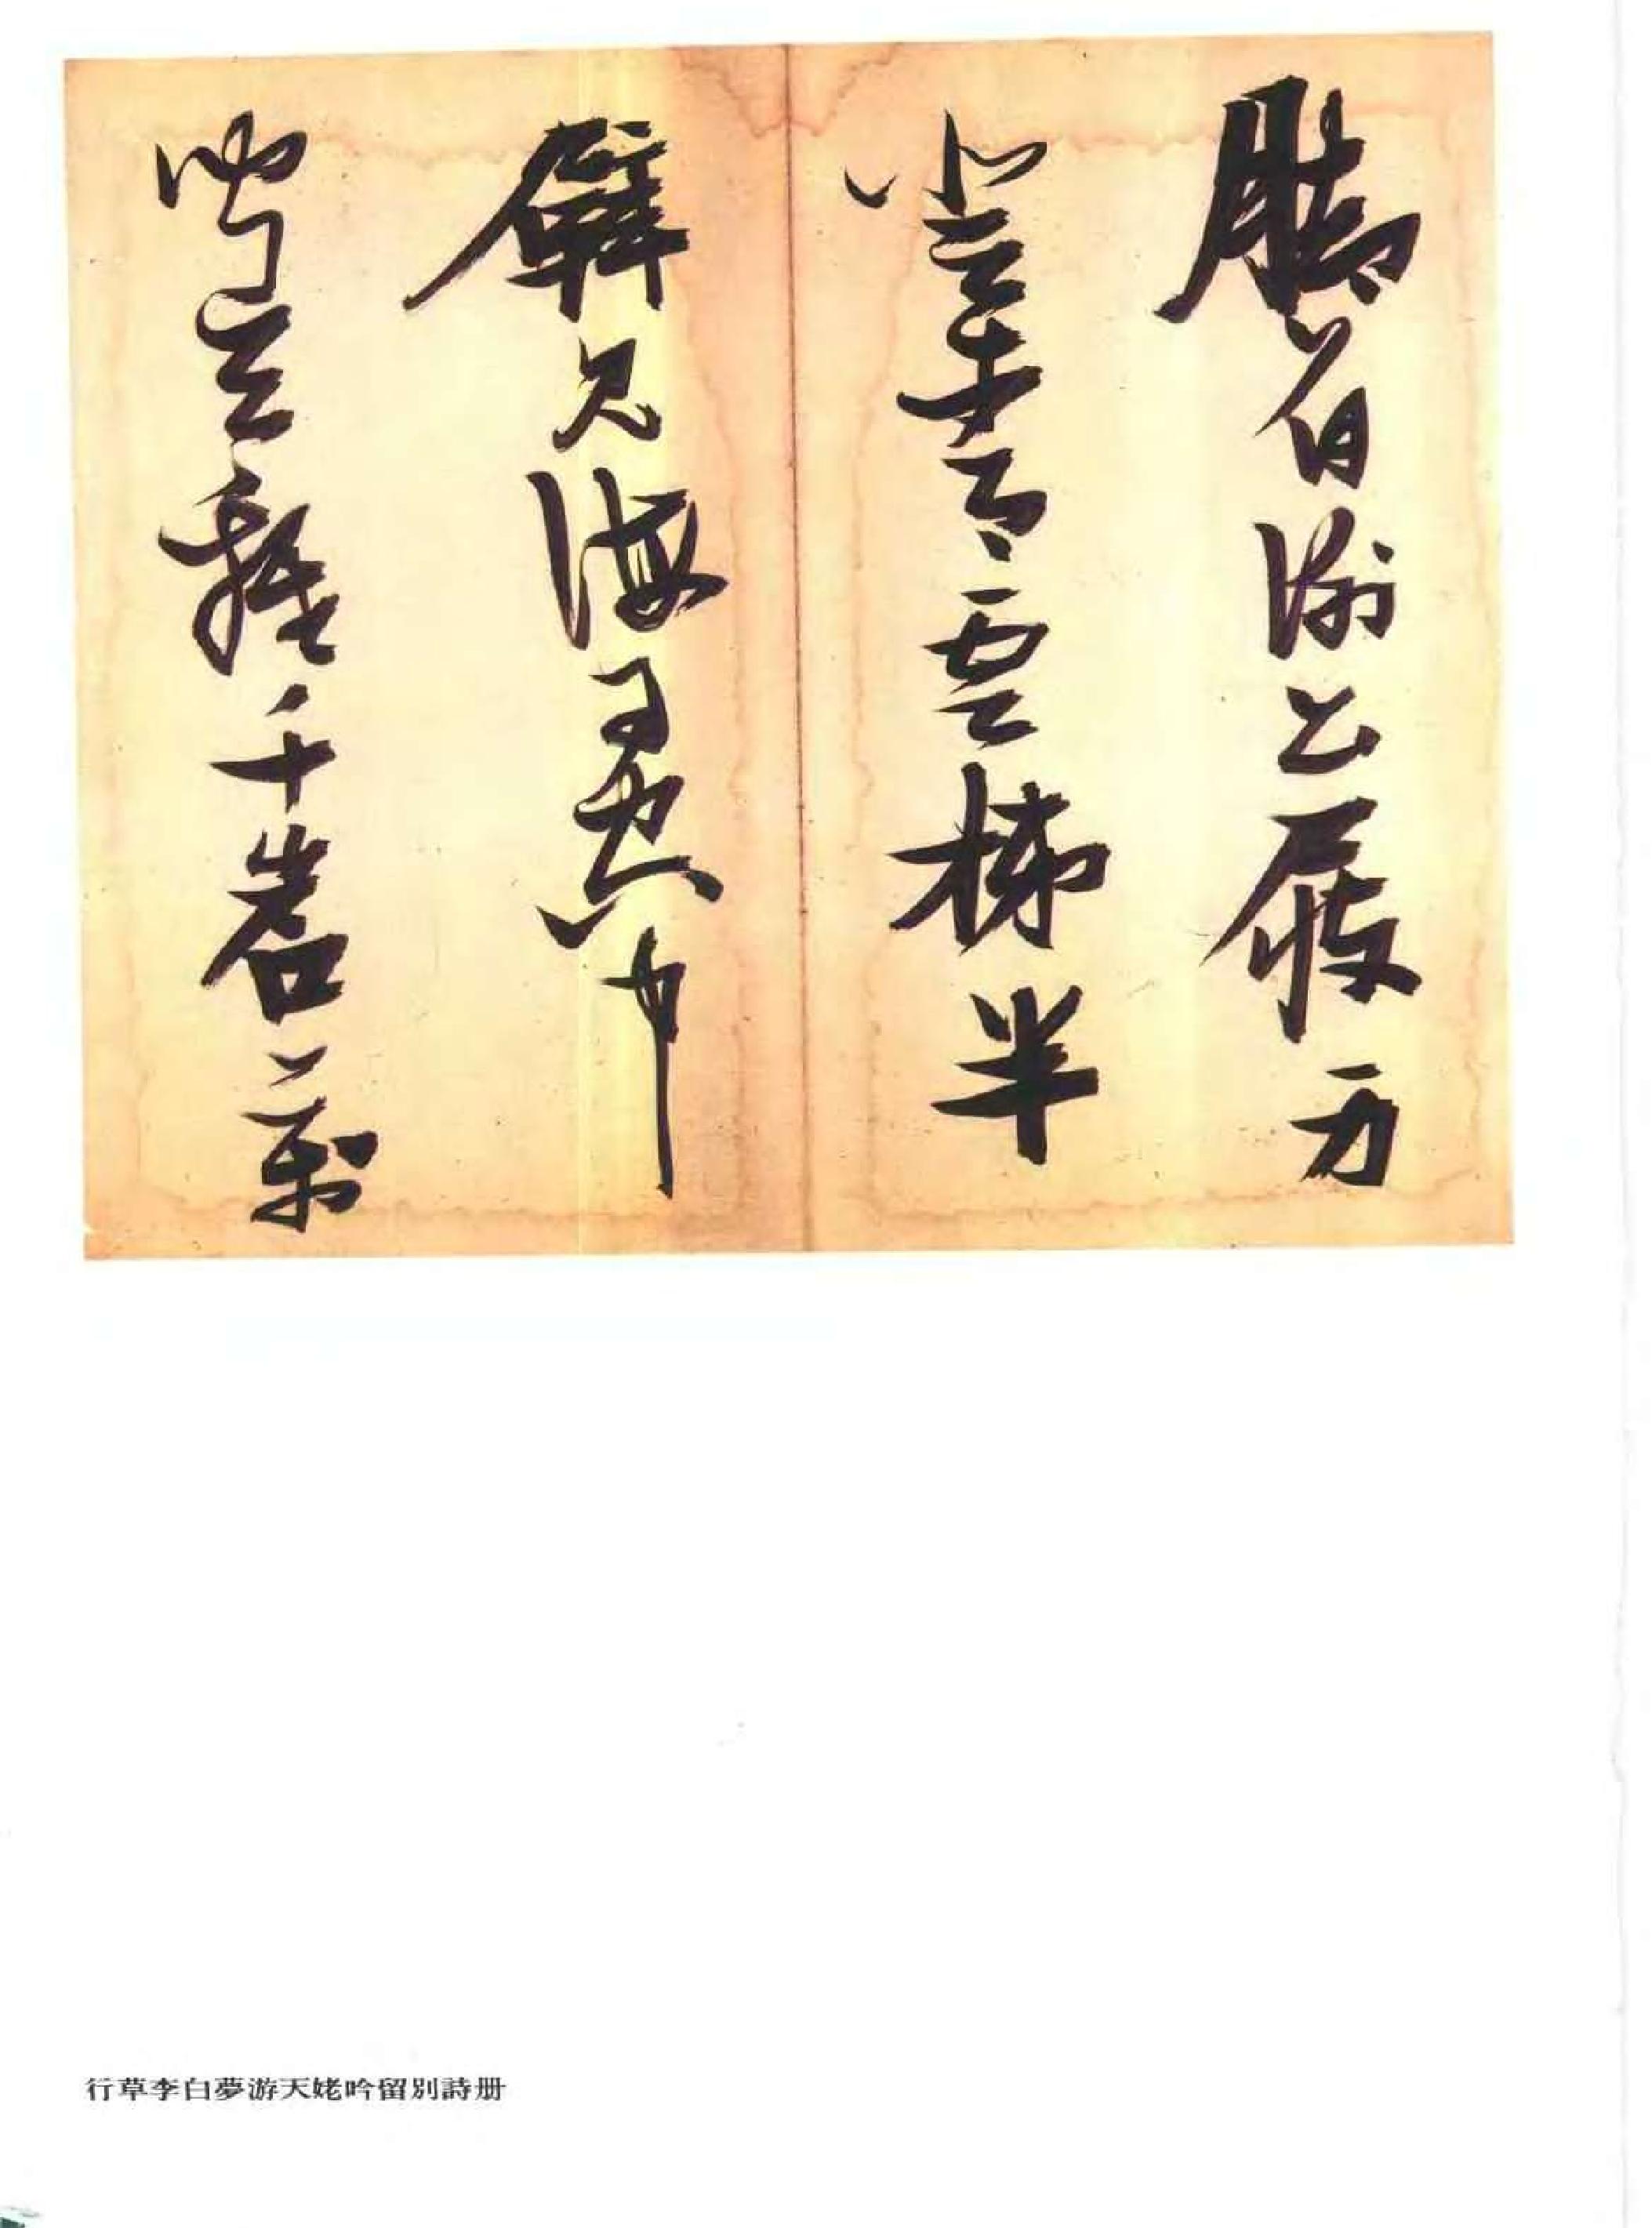 脚著謝公屐身
登青雲梯半
壁見海日空中
聞天雞千岩萬
行草李白夢游天姥吟留別詩册